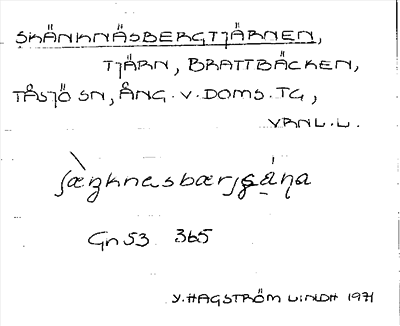 SKÄNKNÄSBERGTJÄRNEN,
TJÄRN, BRATTBÄCKEN,
TÅSJÖ SN, ÅNG. V. DOMS. TG,
Gn 53 365
Y. HAGSTRÖM LINDH 1971